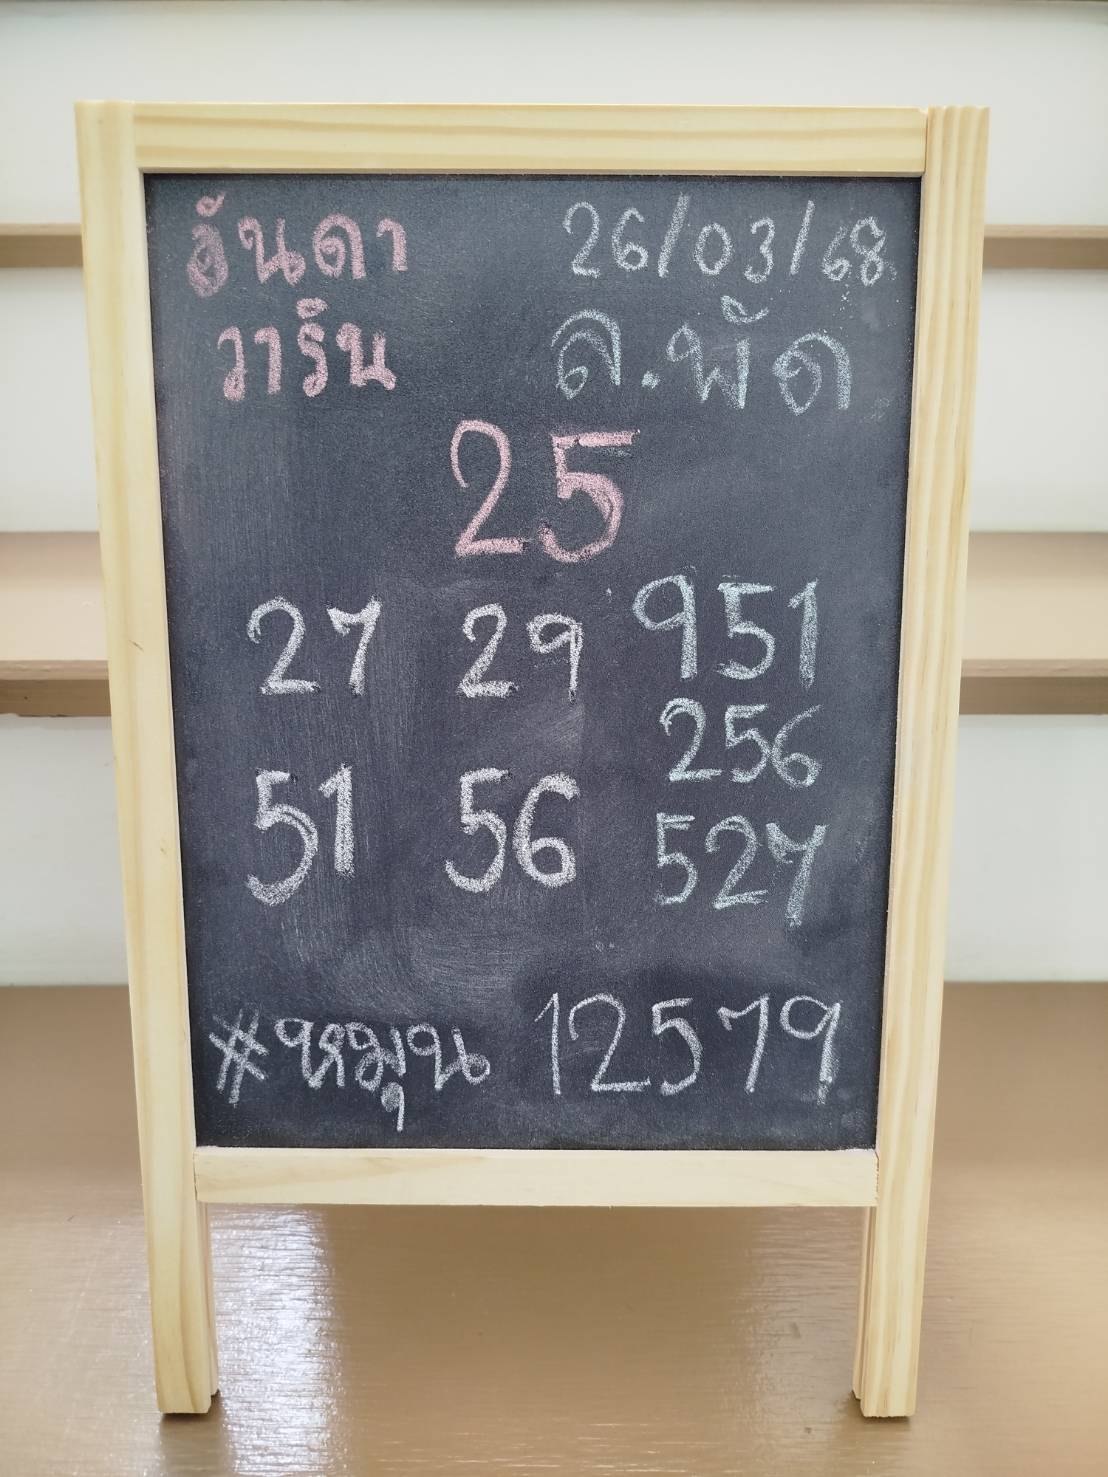 อันดา 26/03/68
วาริน ล.พัด
25
27 29 951
256
51 56
527
#หมุน 12579